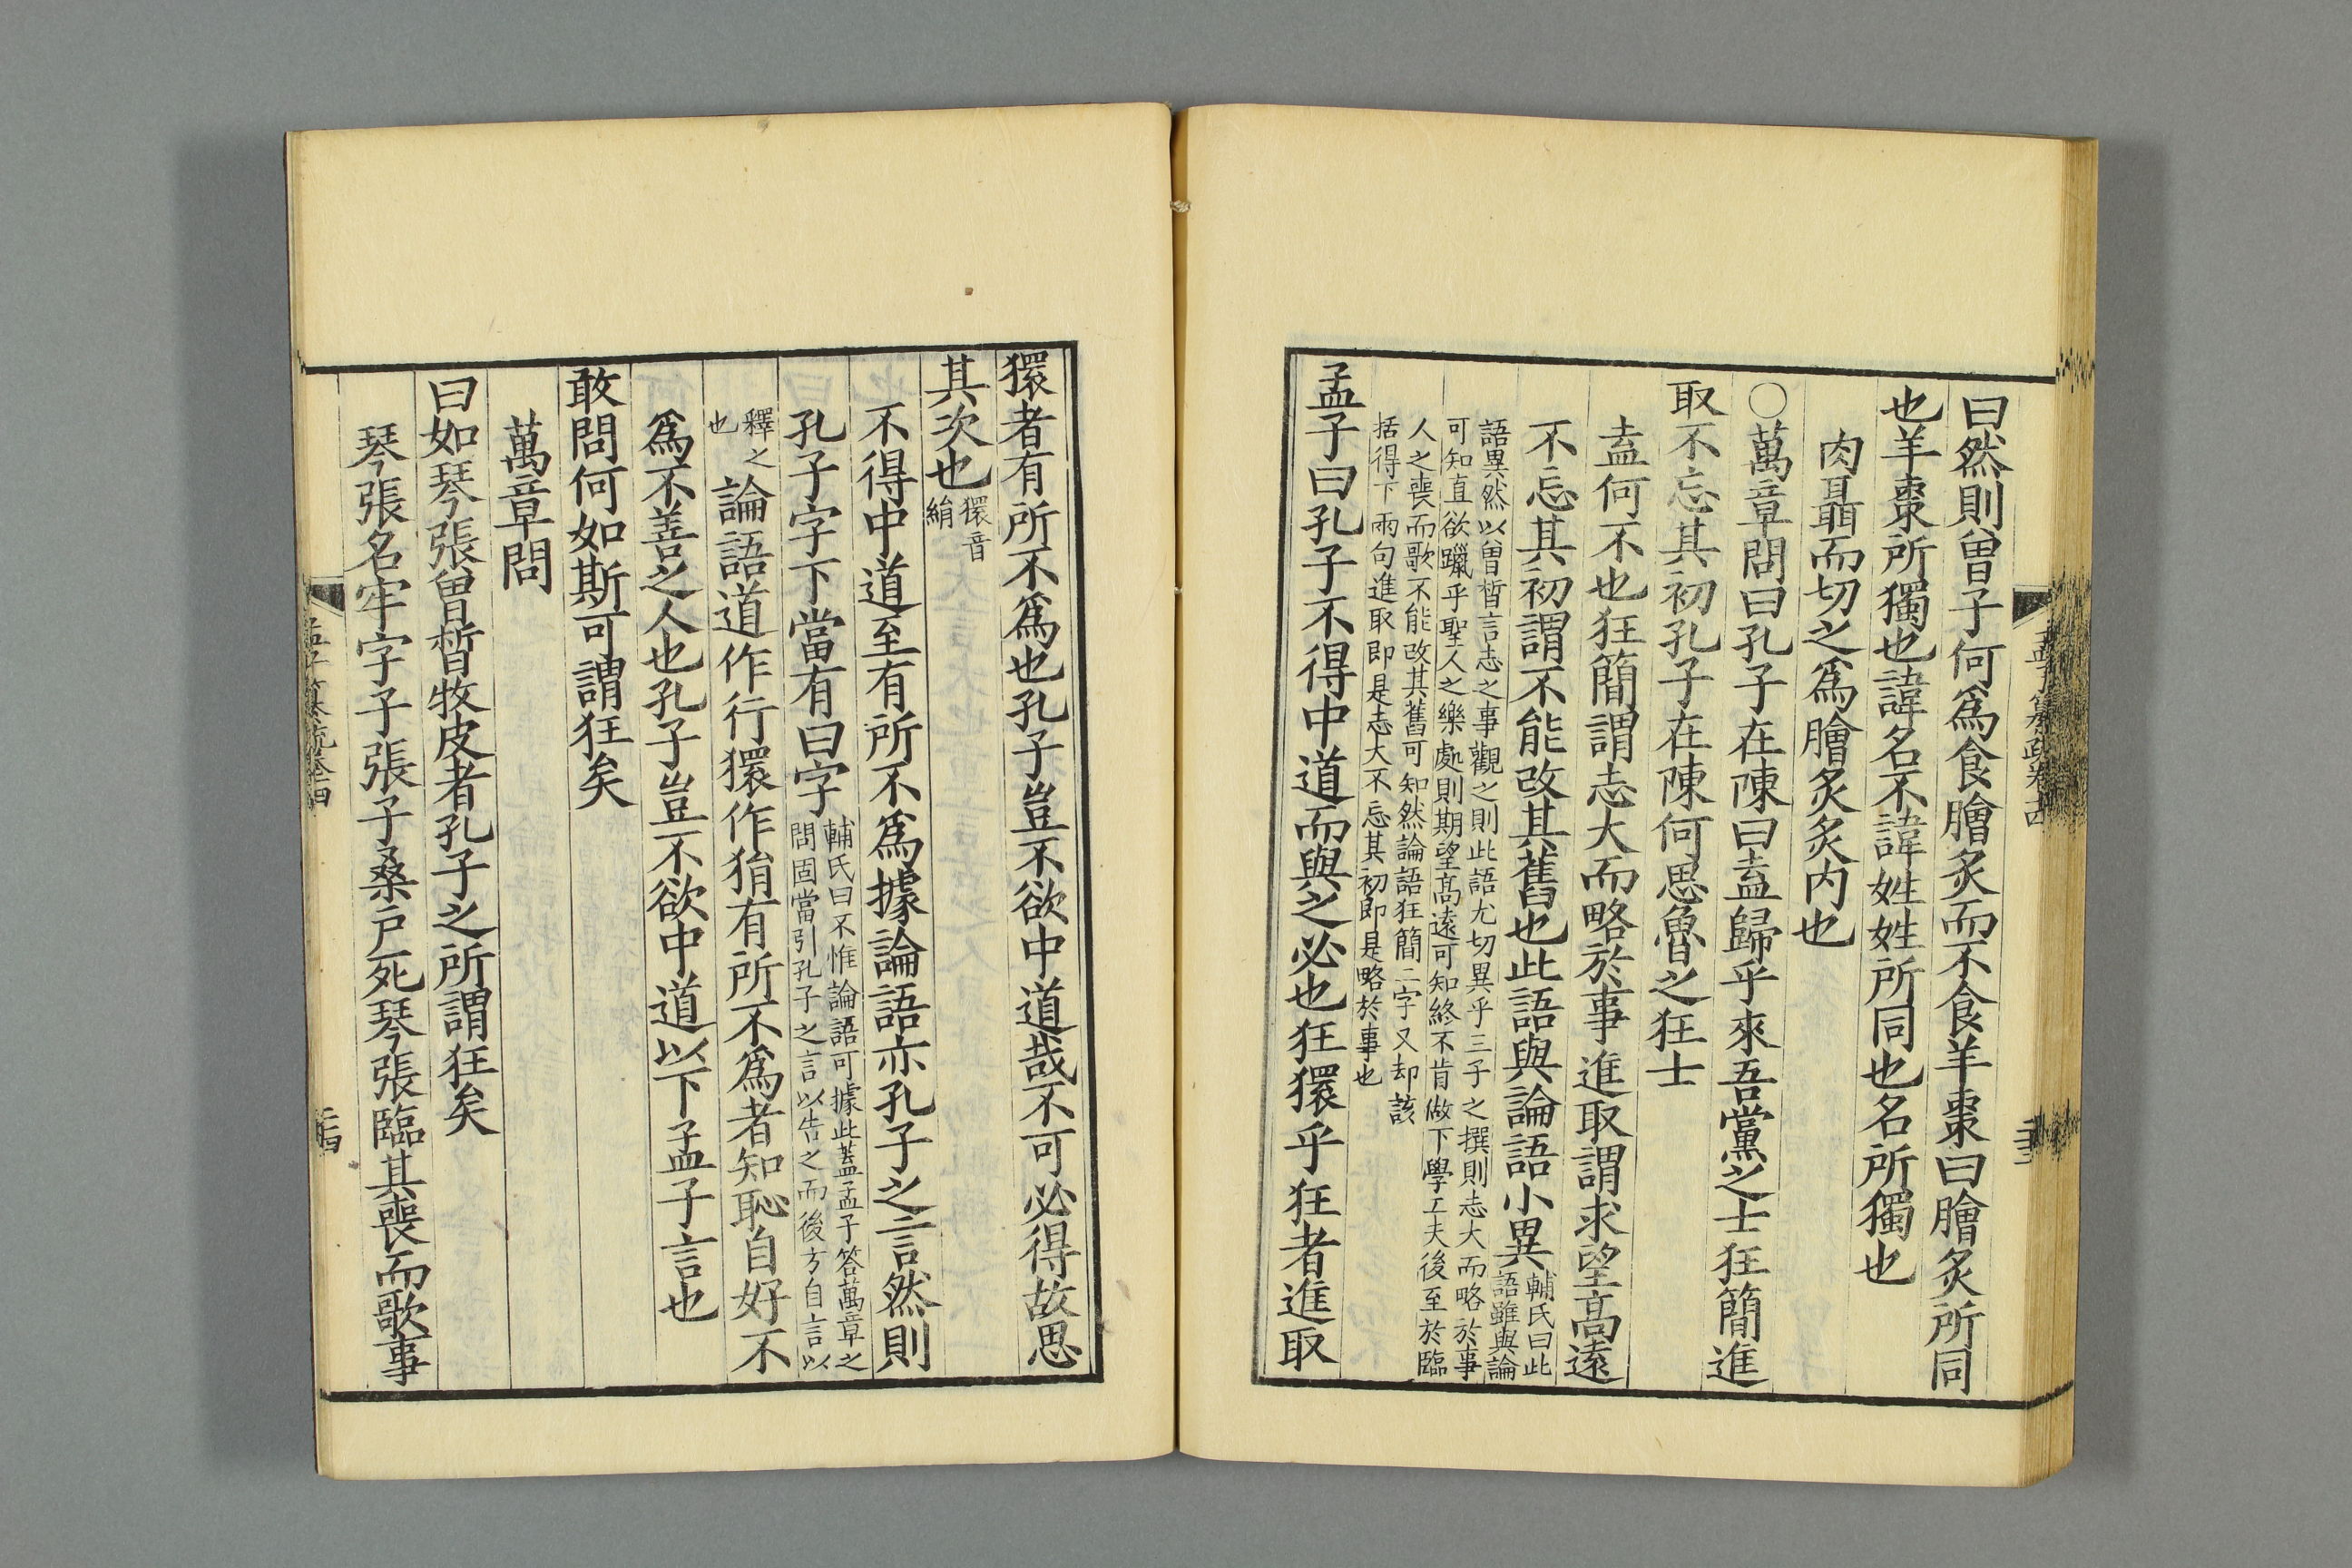 孟子纂疏卷十四
曰然則曾子何爲食膾炙而不食羊棗曰膾炙所同
也羊棗所獨也諱名不諱姓姓所同也名所獨也
肉聶而切之爲膾炙炙肉也
○萬章問曰孔子在陳曰盍歸乎來吾黨之士狂簡進
取不忘其初孔子在陳何思魯之狂士
盍何不也狂簡謂志大而略於事進取謂求望高遠
不忘其初謂不能改其舊也此語與論語小異輔氏曰此語雖與論
語異然以曾晳言志之事觀之則此語尤切異乎三子之撰則志大而略於事
可知直欲躐乎聖人之樂處則期望高遠可知終不肯做下學工夫後至於臨
人之喪而歌不能改其舊可知然論語狂簡二字又却該
括得下兩句進取即是志大不忘其初即是略於事也
孟子曰孔子不得中道而與之必也狂獧乎狂者進取
獧者有所不爲也孔子豈不欲中道哉不可必得故思
其次也獧音絹
不得中道至有所不爲據論語亦孔子之言然則
孔子字下當有曰字輔氏曰不惟論語可據此蓋孟子答萬章之問固當引孔子之言以告之而後方自言以
釋之也論語道作行獧作狷有所不爲者知恥自好不
爲不善之人也孔子豈不欲中道以下孟子言也
敢問何如斯可謂狂矣
萬章問
曰如琴張曾晳牧皮者孔子之所謂狂矣
琴張名牢字子張子桑戶死琴張臨其喪而歌事
孟子纂疏卷十四